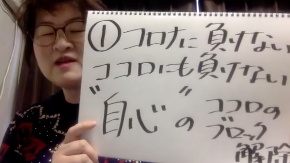 ①コロナに負けない
ココロにも負けない
"自心"のココロの
ブロック
解除